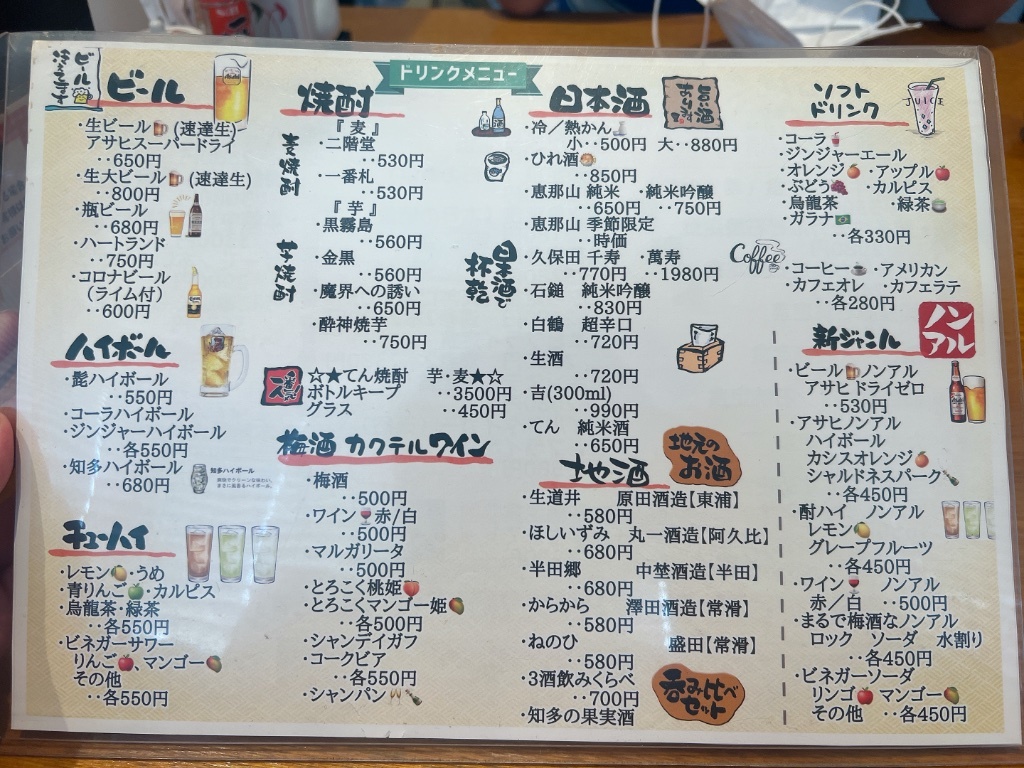 ドリンクメニュー
ビール冷えてます
ビール
・生ビール (速達生)
アサヒスーパードライ
‥650円
・生大ビール (速達生)
‥800円
・瓶ビール
‥680円
・ハートランド
‥750円
・コロナビール
（ライム付）
‥600円
ハイボール
・髭ハイボール
‥550円
・コーラハイボール
・ジンジャーハイボール
‥各550円
・知多ハイボール
‥680円
知多ハイボール
チューハイ
・レモン ・うめ
・青りんご ・カルピス
・烏龍茶・緑茶
‥各550円
・ビネガーサワー
りんご、マンゴー
その他
‥各550円
焼酎
麦焼酎
『 麦 』
・二階堂
‥530円
・一番札
‥530円
芋焼酎
『 芋 』
・黒霧島
‥560円
・金黒
‥560円
・魔界への誘い
‥650円
・酔神焼芋
‥750円
☆★てん焼酎 芋・麦★☆
ボトルキープ ‥3500円
グラス ‥450円
梅酒 カクテル ワイン
・梅酒
‥500円
・ワイン 赤/白
‥500円
・マルガリータ
‥500円
・とろこく桃姫
・とろこくマンゴー姫
‥各500円
・シャンデイガフ
・コークビア
‥各550円
・シャンパン
日本酒
旨い酒あります
日本酒で乾杯
・冷／熱かん
小‥500円 大‥880円
・ひれ酒
‥850円
・恵那山 純米 ・純米吟醸
‥650円 ‥750円
・恵那山 季節限定
‥時価
・久保田 千寿 ・萬寿
‥770円 ‥1980円
・石鎚 純米吟醸
‥830円
・白鶴 超辛口
‥720円
・生酒
‥720円
・吉(300ml)
‥990円
・てん 純米酒
‥650円
地酒
地元のお酒
・生道井 原田酒造【東浦】
‥580円
・ほしいずみ 丸一酒造【阿久比】
‥680円
・半田郷 中埜酒造【半田】
‥680円
・からから 澤田酒造【常滑】
‥580円
・ねのひ 盛田【常滑】
‥580円
・3酒飲みくらべ
‥700円
・知多の果実酒
呑み比べセット
ソフトドリンク
JUICE
・コーラ
・ジンジャーエール
・オレンジ ・アップル
・ぶどう ・カルピス
・烏龍茶 ・緑茶
・ガラナ
‥各330円
Coffee
・コーヒー ・アメリカン
・カフェオレ ・カフェラテ
‥各280円
新ジャンル
ノンアル
・ビール ノンアル
アサヒドライゼロ
‥530円
・アサヒノンアル
ハイボール
カシスオレンジ
シャルドネスパーク
‥各450円
・酎ハイ ノンアル
レモン
グレープフルーツ
‥各450円
・ワイン ノンアル
赤／白 ‥500円
・まるで梅酒なノンアル
ロック ソーダ 水割り
‥各450円
・ビネガーソーダ
リンゴ マンゴー
その他 ‥各450円